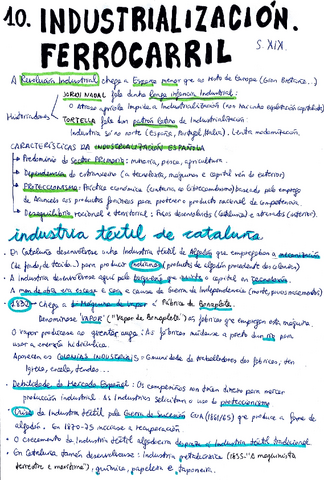 10. INDUSTRIALIZACIÓN.
FERROCARRIL
S.XIX.
A Revolución Industrial chega a España menor que ao resto de Europa (Gran Bretaña...)
JORDI NADAL fala dunha longa infancia industrial:
O atraso agrícola impide a Industrialización
Historiadores
TORTELLA fala dun patrón latino de Industrialización:
Industria só no norte (España, Portugal, Italia). Lenta modernización.
CARACTERÍSTICAS DA INDUSTRIALIZACIÓN ESPAÑOLA
Predominio do Sector PRIMARIO: minería, pesca, agricultura.
Dependencia do extranxeiro (a tecnoloxía, máquinas e capital viñan do exterior)
PROTECCIONISMO: Política económica (contraria ao librecambismo) baseada polo emprego
de aranceis aos productos foráneos para protexer o producto nacional da competencia
Desequilibrio rexional e territorial: Rexas desenvolvidas (Cataluña) e atrasadas (interior).
industria téxtil de cataluña
En Cataluña desenvólvese unha Industria téxtil de Algodón que empregaban a mecanización
(de fiado, de tecido...) para producir indianas (productos de algodón procedente das colonias)
A Industria desenvólvese aquí pola burguesía que invirte o capital en tecnoloxía.
A man de obra era escasa e cara a causa da Guerra de Independencia
1832 - Chega a 1ª Máquina de vapor á Fábrica de Bonaplata.
Denomínase "VAPOR" ("Vapor de Bonaplata") as fábricas que empregan esta máquina.
O vapor prodúcese ao quentar auga: As fábricas sitúanse a preto dun río para
usar a enerxía hidráulica.
Aparecen as COLONIAS INDUSTRIAIS: Comunidade de traballadores das fábricas, ten
igrexa, escola, tendas...
Debilidade do Mercado Español: Os campesiños non tiñan diñeiro para mercar
producción industrial. As Industrias solicitan o uso do proteccionismo
Crise da Industria téxtil pola Guerra de Sucesión EUA (1861/65) que produce a fame de
algodón. En 1870-75 iníciase a recuperación
O crecemento da Industria téxtil algodoeira despraza a industria téxtil tradicional
En Cataluña tamén desenvólvese: Industria metalúrxica (1855-"a maquinista
terrestre e marítima"), química, papeleira e taponeira.